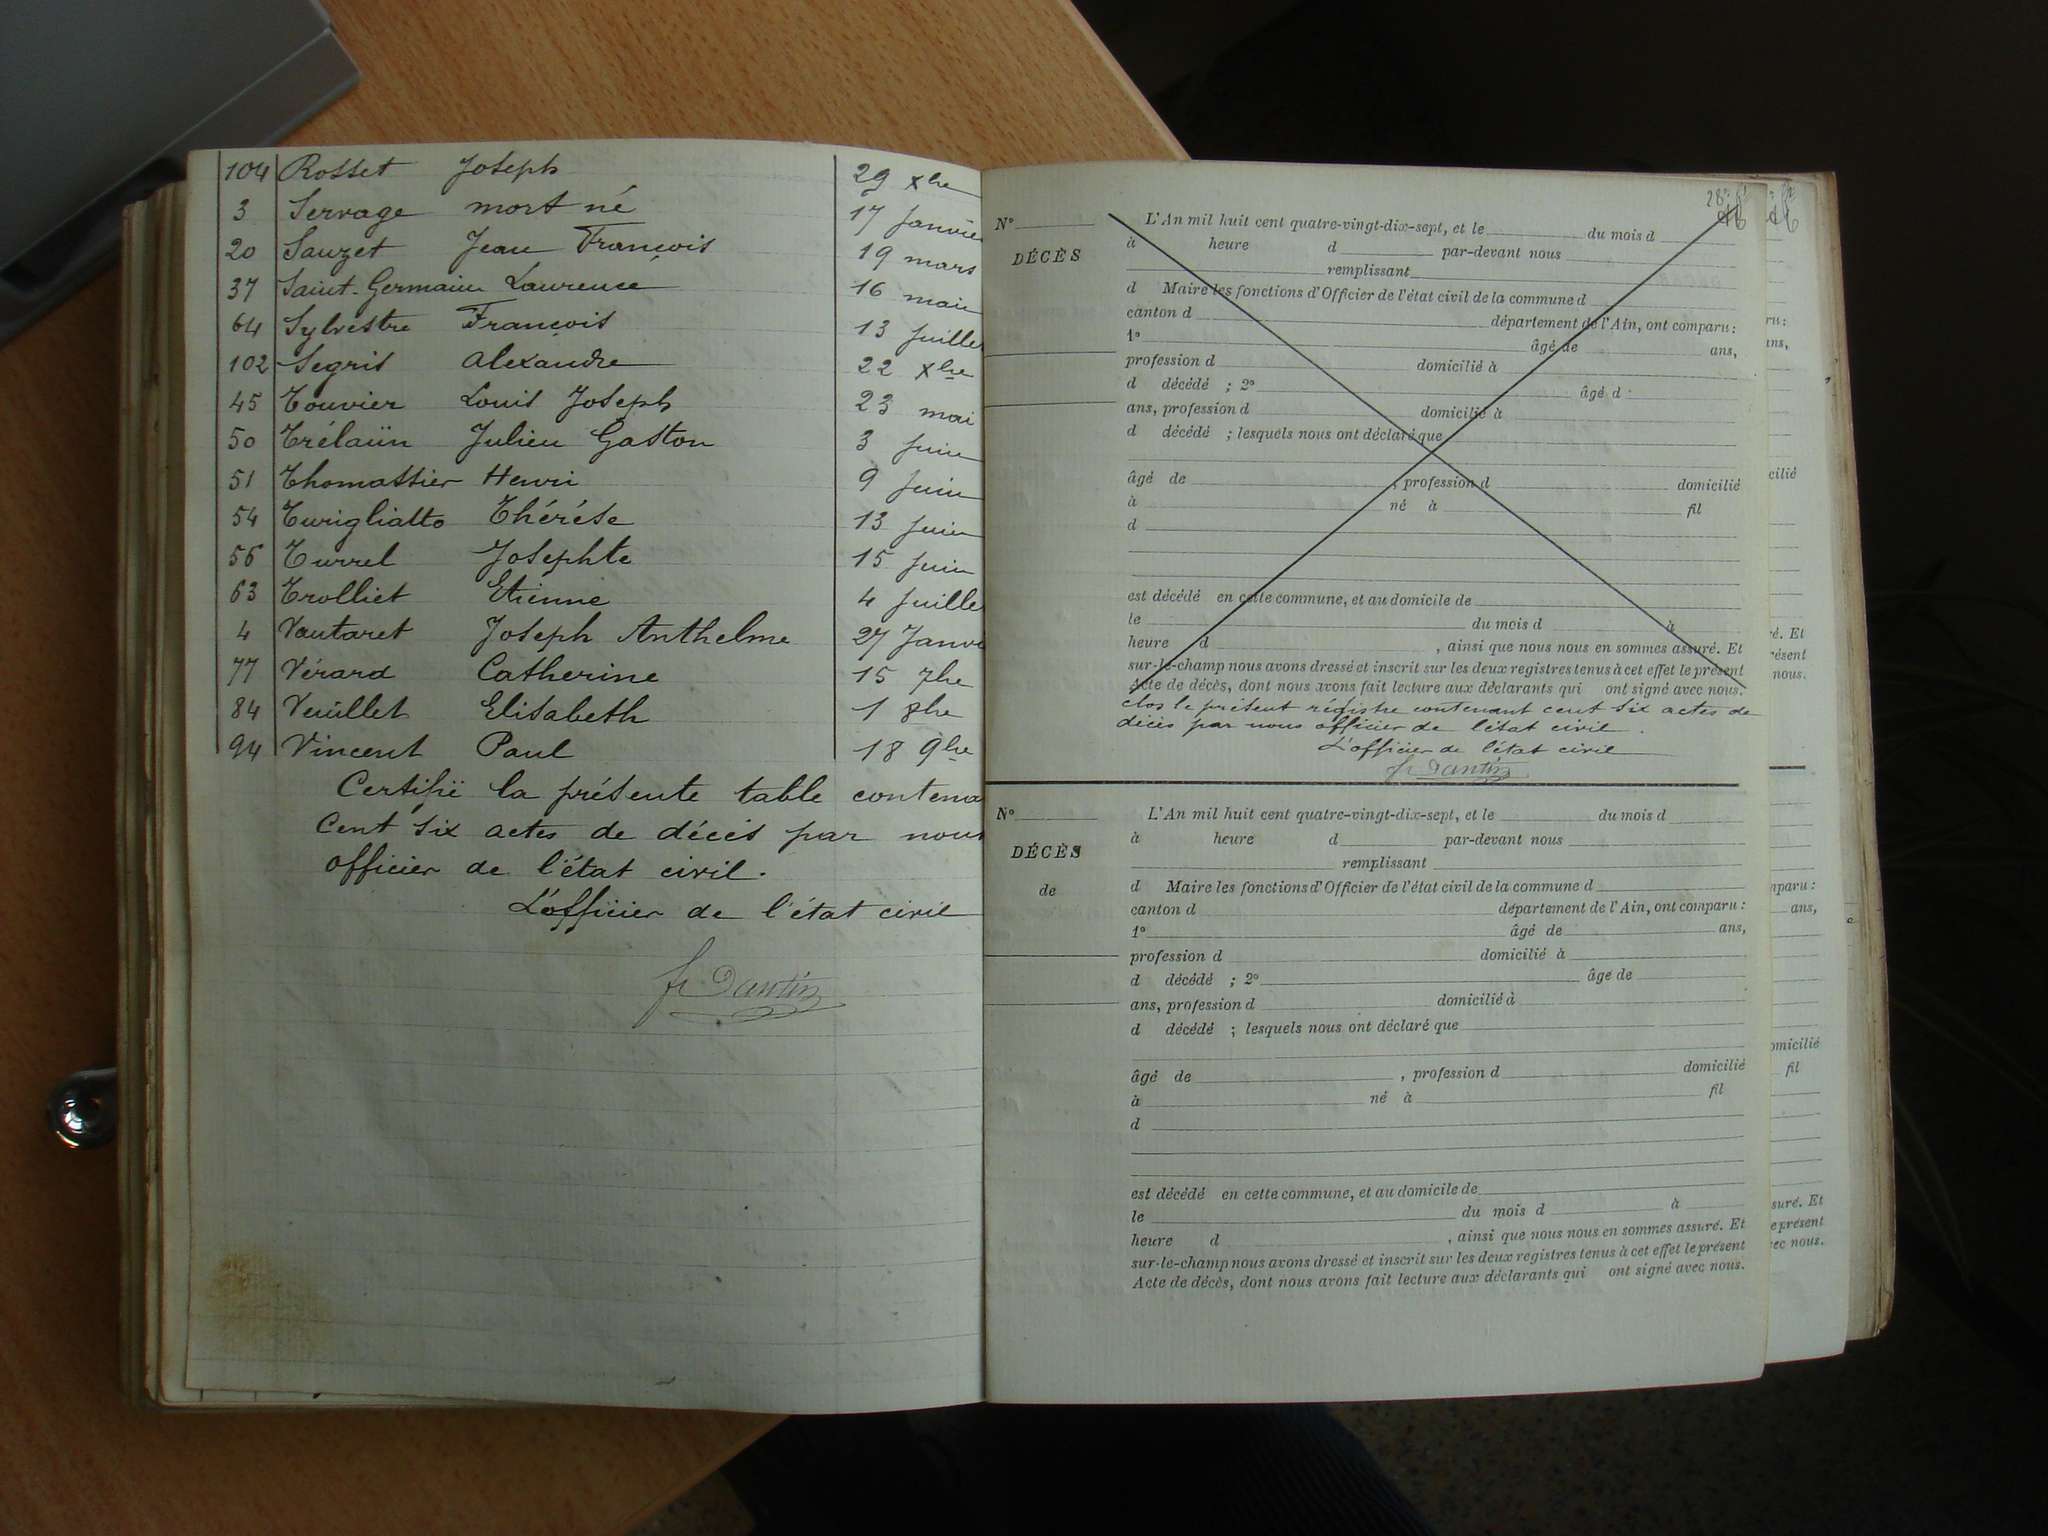 104 Rosset Joseph 29 Xbre
3 Servage mort né 17 Janvie
20 Sauzet Jean François 19 mars
37 Saint-Germain Laurence 16 mai
64 Sylvestre François 13 Juille
102 Segris Alexandre 22 Xbre
45 Touvier Louis Joseph 23 mai
50 Trélaün Julien Gaston 3 Juin
51 Thomassier Henri 9 Juin
54 Turigliatto Thérèse 13 Juin
56 Turrel Josephte 15 Juin
63 Trolliet Etienne 4 Juille
4 Vautaret Joseph Anthelme 27 Janv
77 Vérard Catherine 15 7bre
84 Veuillet Elisabeth 1 8bre
94 Vincent Paul 18 9bre
Certifié la présente table contena
Cent six actes de décès par nous
officier de l'état civil.
L'officier de l'état civil
fr Dantin
N°
DÉCÈS
L'An mil huit cent quatre-vingt-dix-sept, et le du mois d
à heure d par-devant nous
remplissant
d Maire les fonctions d'Officier de l'état civil de la commune d
canton d département de l'Ain, ont comparu:
1° âgé de ans,
profession d domicilié à
d décédé ; 2° âgé d
ans, profession d domicilié à
d décédé ; lesquels nous ont déclaré que
âgé de , profession d domicilié
à né à fil
d
est décédé en cette commune, et au domicile de
le du mois d à
heure d , ainsi que nous nous en sommes assuré. Et
sur-le-champ nous avons dressé et inscrit sur les deux registres tenus à cet effet le présent
Acte de décès, dont nous avons fait lecture aux déclarants qui ont signé avec nous.
clos le présent régistre contenant cent six actes de
décès par nous officier de l'état civil.
L'officier de l'état civil
fr Dantin
N°
DÉCÈS
de
L'An mil huit cent quatre-vingt-dix-sept, et le du mois d
à heure d par-devant nous
remplissant
d Maire les fonctions d'Officier de l'état civil de la commune d
canton d département de l'Ain, ont comparu:
1° âgé de ans,
profession d domicilié à
d décédé ; 2° âge de
ans, profession d domicilié à
d décédé ; lesquels nous ont déclaré que
âgé de , profession d domicilié
à né à fil
d
est décédé en cette commune, et au domicile de
le du mois d à
heure d , ainsi que nous nous en sommes assuré. Et
sur-le-champ nous avons dressé et inscrit sur les deux registres tenus à cet effet le présent
Acte de décès, dont nous avons fait lecture aux déclarants qui ont signé avec nous.